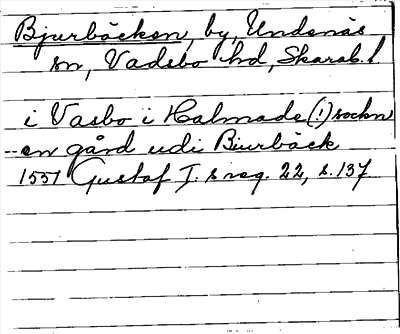 Bjurbäcken, by, Undenäs
sn, Vadsbo hd, Skarab. l.
i Vasbo i Halmade (!) sockn
-- en gård udi Biurbäck
1551 Gustaf I:s reg. 22, s. 137